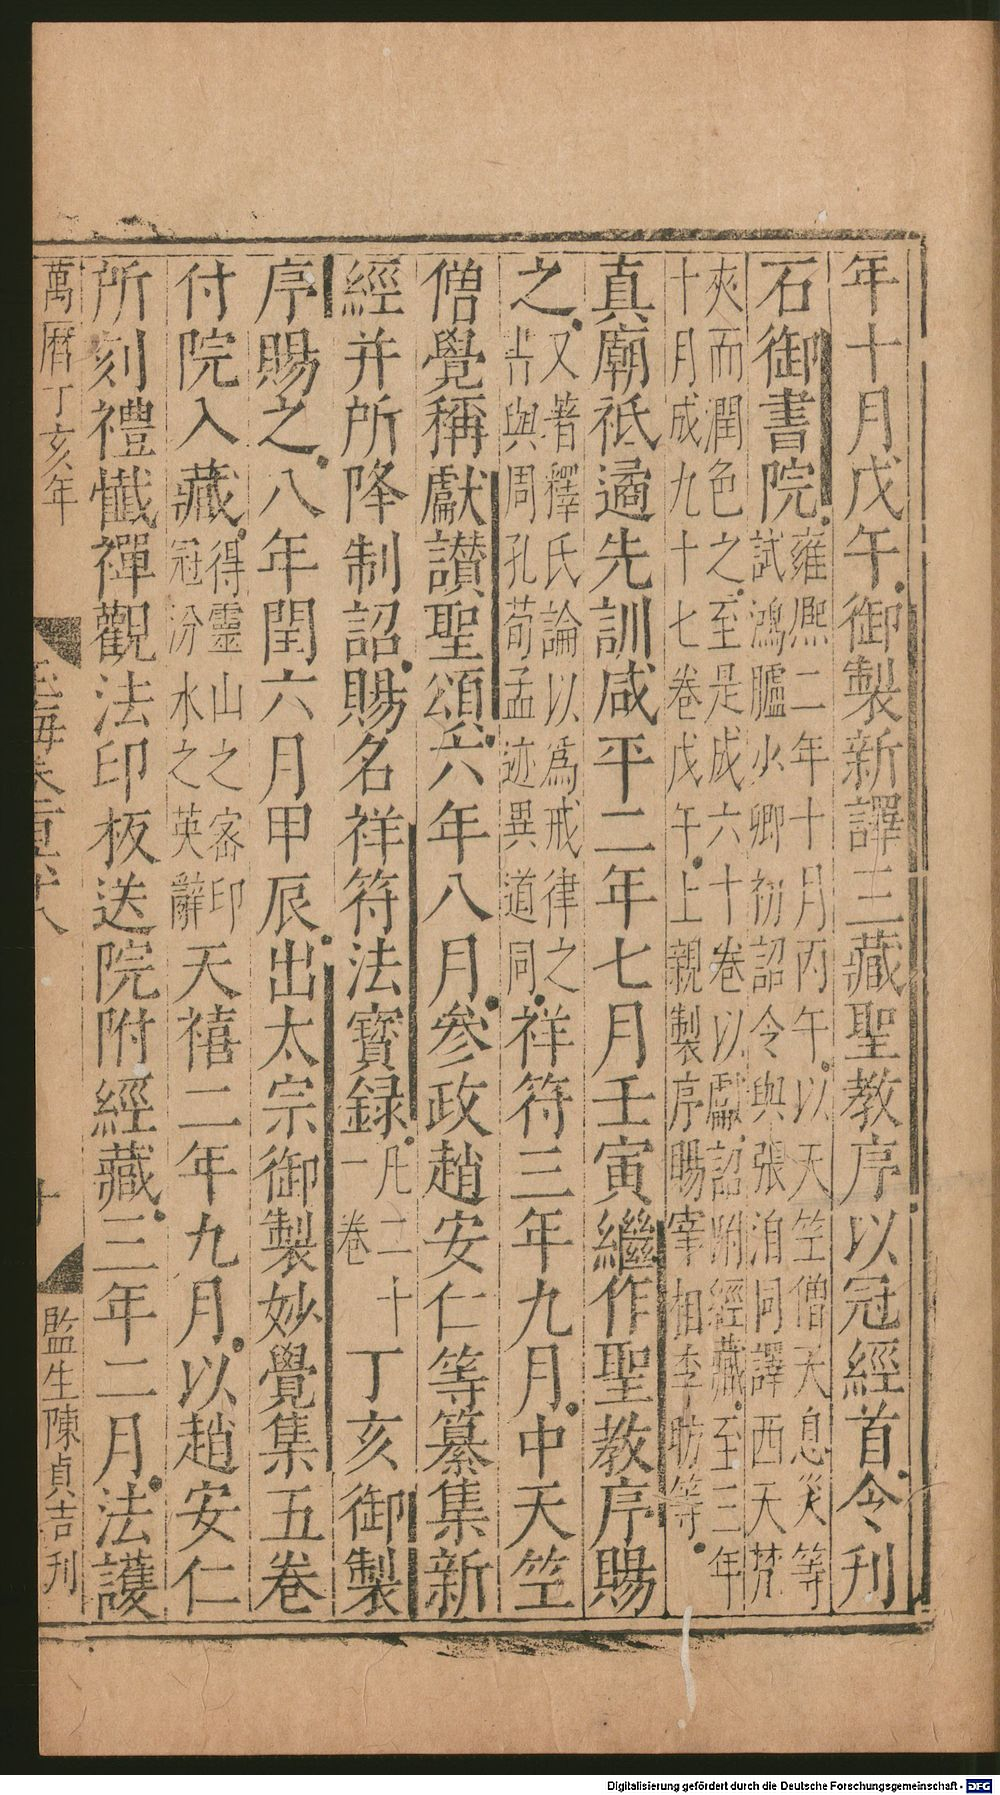 年十月戊午御製新譯三藏聖教序以冠經首令刊
石御書院雍熙二年十月丙午以天竺僧天息災等
試鴻臚少卿初詔令與張洎同譯西天梵
夾而潤色之至是成六十卷以獻詔附經藏至三年
十月成九十七卷戊午上親製序賜宰相李昉等
真廟祗遹先訓咸平二年七月壬寅繼作聖教序賜
之又著釋氏論以為戒律之
書與周孔荀孟迹異道同祥符三年九月中天竺
僧覺稱獻讚聖頌六年八月參政趙安仁等纂集新
經并所降制詔賜名祥符法寳録凡二十
一卷丁亥御製
序賜之八年閏六月甲辰出太宗御製妙覺集五卷
付院入藏得靈山之密印
冠汾水之英辭天禧二年九月以趙安仁
所刻禮懺禪觀法印板送院附經藏三年二月法護
萬曆丁亥年
監生陳貞吉刋
Digitalisierung gefördert durch die Deutsche Forschungsgemeinschaft - DFG